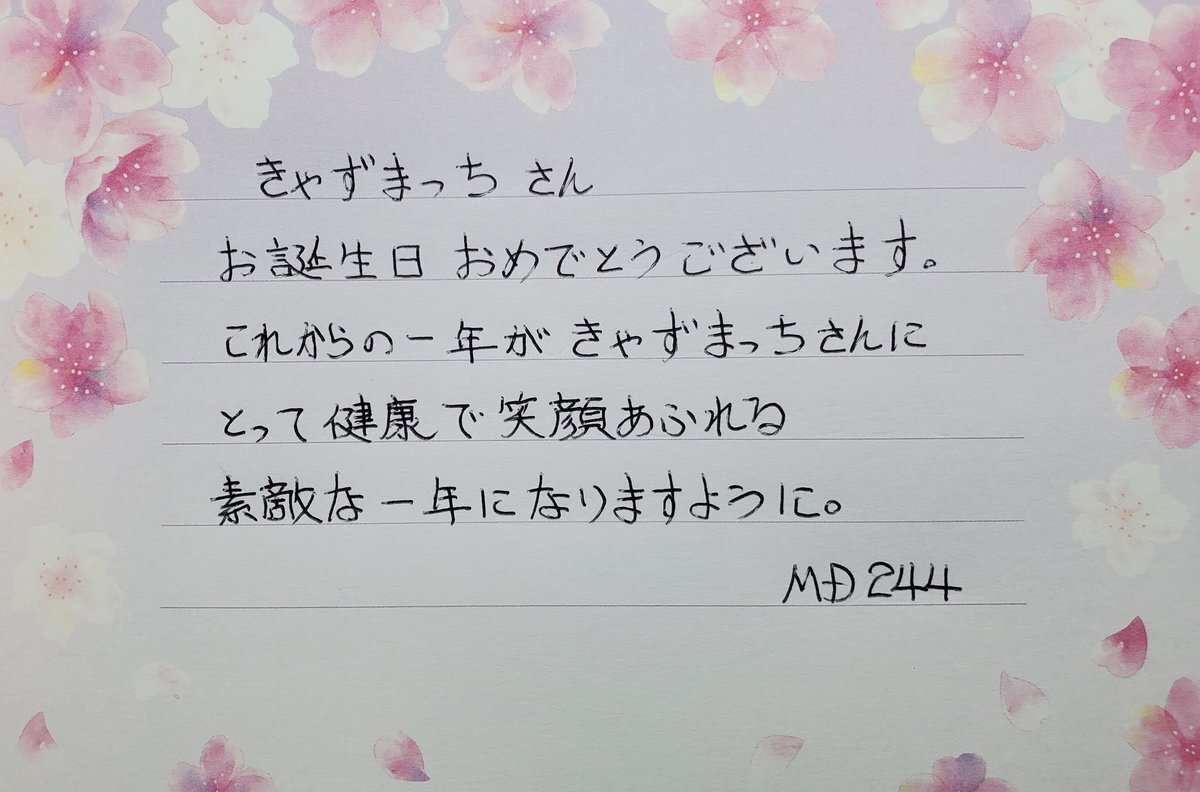 きゃずまっち さん
お誕生日 おめでとうございます。
これからの一年が きゃずまっちさんに
とって健康で 笑顔あふれる
素敵な一年になりますように。
MD244